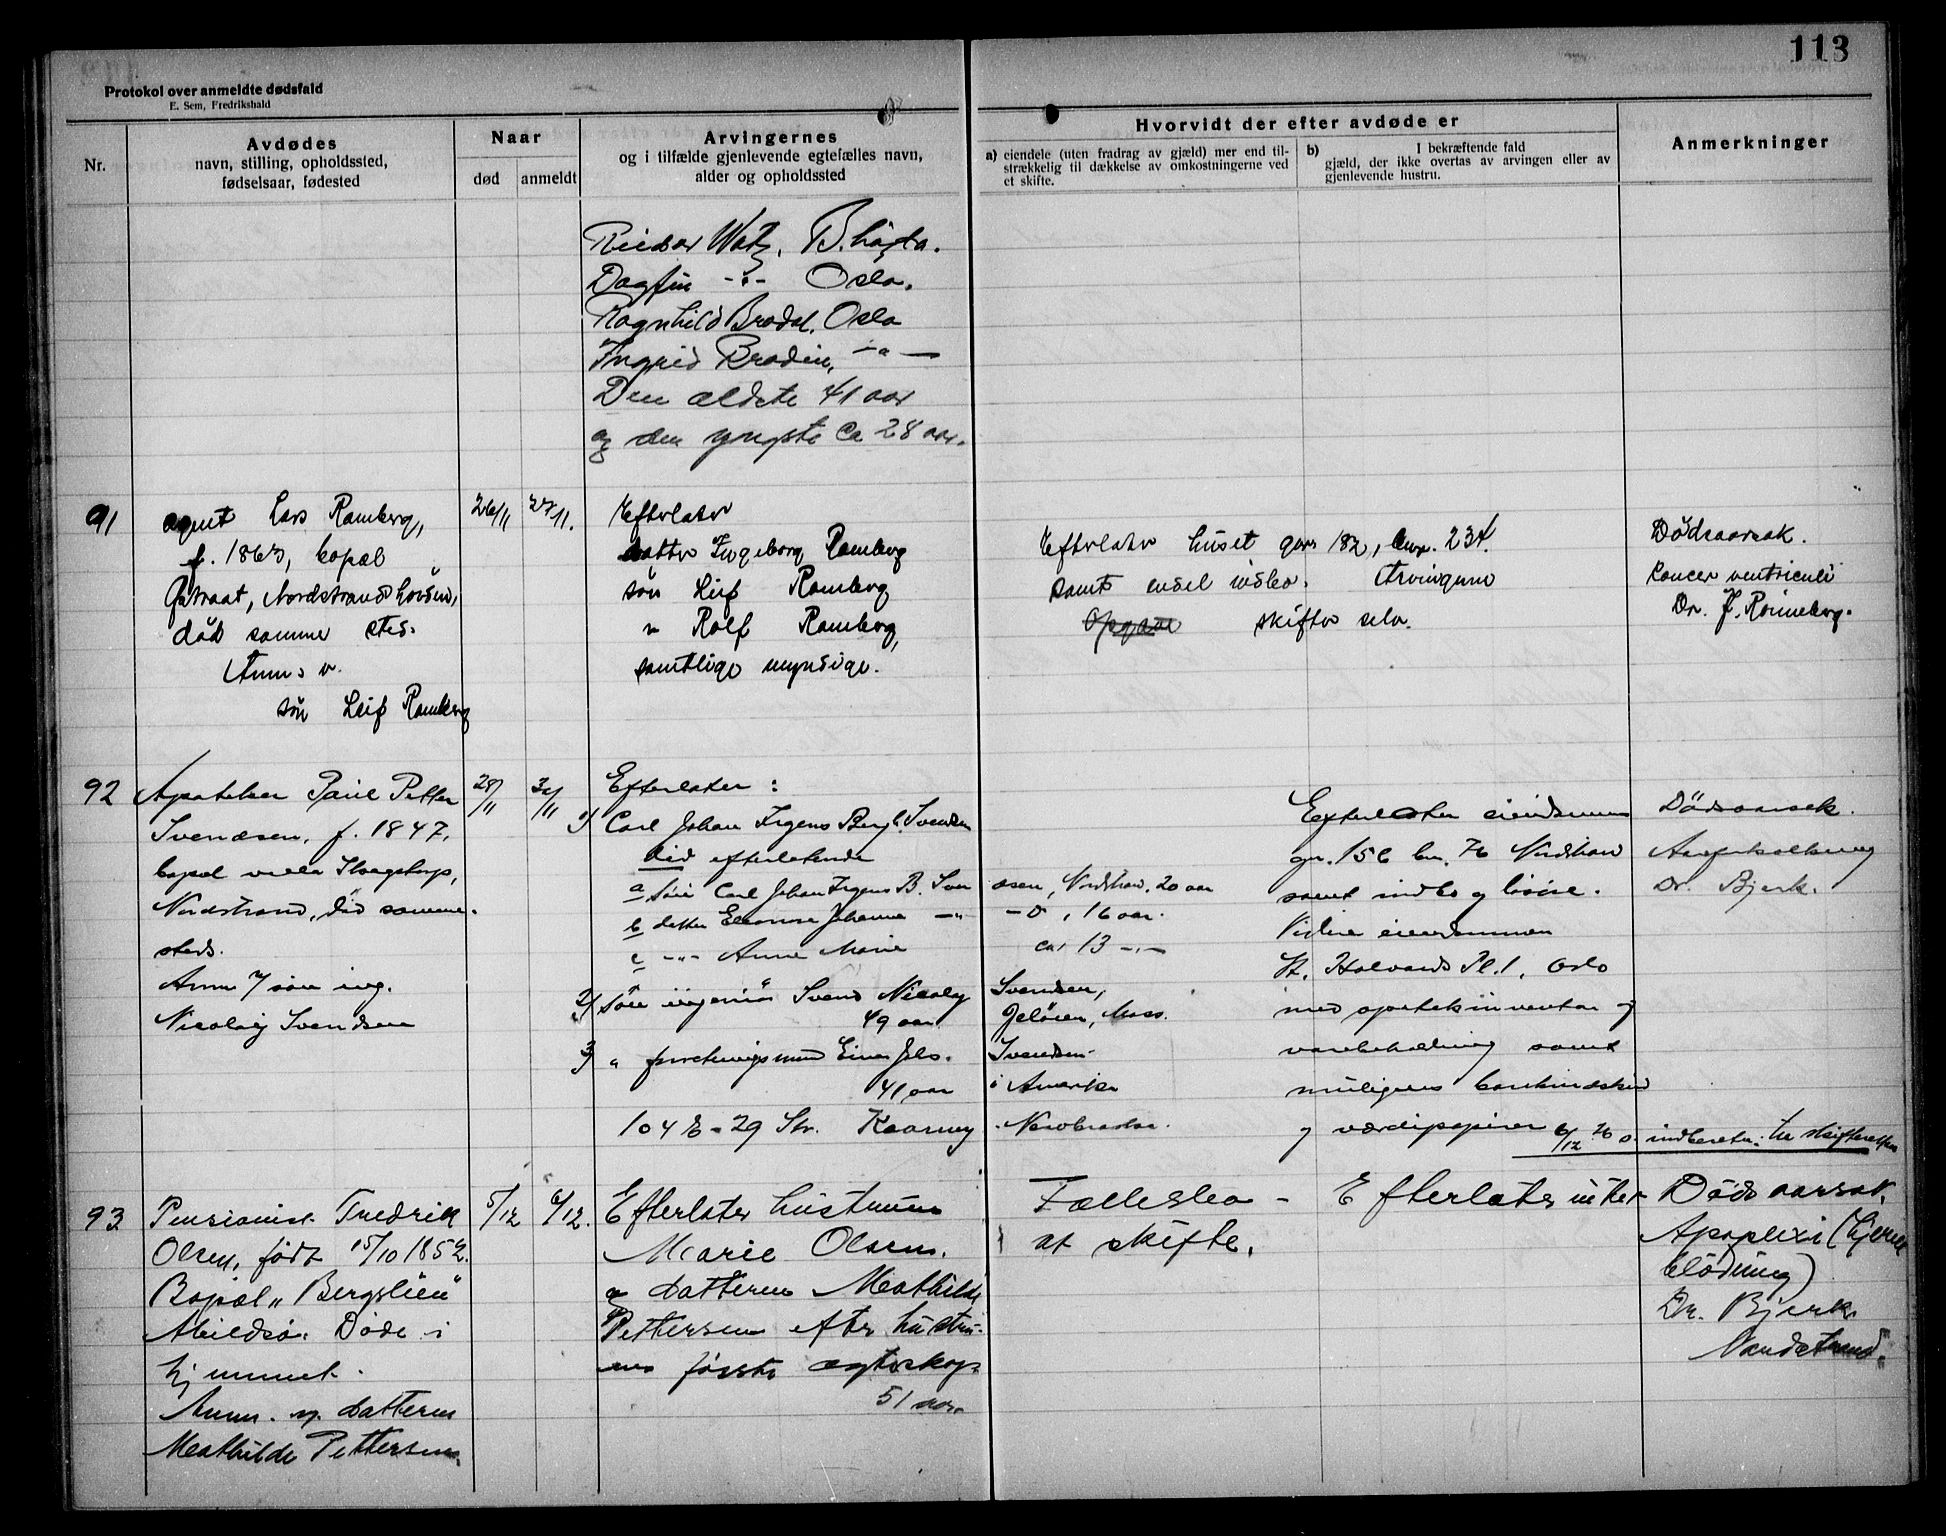 113
Protokol over anmeldte dødsfald
E. Sem, Fredrikshald
Nr.
Avdødes
navn, stilling, opholdssted,
fødselsaar, fødested
Naar
død
anmeldt
Arvingernes
og i tilfælde gjenlevende egtefælles navn,
alder og opholdssted
Hvorvidt der efter avdøde er
a) eiendele (uten fradrag av gjæld) mer end til-
strækkelig til dækkelse av omkostningerne ved
et skifte.
b) I bekræftende fald
gjæld, der ikke overtas av arvingen eller av
gjenlevende hustru.
Anmerkninger
Reidar Watz, B.
Dagfin -"- Oslo.
Ragnhild Oslo
Ingrid Brodin, -"-
Den ældste 41 aar
og den yngste ca 28 aar.
91
agent Lars Ramberg,
f. 1867, bopæl
Nordstrandhöiden,
död samme sted.
Anm. v.
sön Leif Ramberg
26/11
27/11.
Efterlater
datter Ingeborg Ramberg
sön Leif Ramberg
" Rolf Ramberg,
samtlige myndige.
Efterlater huset gnr 182, bnr. 234.
samt endel indbo. Arvingerne
skifter selv.
Dödsaarsak.
Cancer ventriculi
Dr. J. Rönneberg.
92
Apoteker Paul Petter
Svendsen, f. 1847,
bopæl villa
Nordstrand, död samme-
steds.
Anm. v/ sön ing.
Nicolay Svendsen
28/11
30/11
Efterlater:
1) Carl Johan Irgens Bergh Svendsen
död efterlatende
a sön Carl Johan Irgens B. Svendsen, Nordstrand, 20 aar
b datter Eleonore Johanne -"- -o-, 16 aar.
c -"- Anne Marie ca. 13 -"-
2) Sön ingeniör Svend Nicolay Svendsen,
49 aar Jelöien, Moss.
3) " forretningsmand Einar Svendsen
41 aar i Amerika
104 E - 29 Str. Kearney Nebraska.
Efterlater eiendommen
gnr. 156 bnr. 76 Nordstrand
samt indbo og lösöre.
Videre eiendommen
St. Halvards Pl. 1, Oslo
med apotekinventar og
varebeholdning samt
muligens bankindskud
og værdipapirer
6/12 26 indberetn. til skifteretten
Dödsaarsak.
Aareforkalkning
Dr. Bjerk.
93
Pensionist Fredrik
Olsen, födt 15/10 1852.
Bopæl "Bergslien"
Abildsö. Döde i
hjemmet.
Anm. av datteren
Mathilde Pettersen.
5/12
6/12.
Efterlater hustruen
Marie Olsen.
og datteren Mathilde
Pettersen efter hustru-
ens förste ægteskap
51 aar.
Fællesbo - Efterlater intet
at skifte.
Döds aarsak.
Apoplexi (hjerne
blödning)
Dr. Bjerk
Nordstrand.